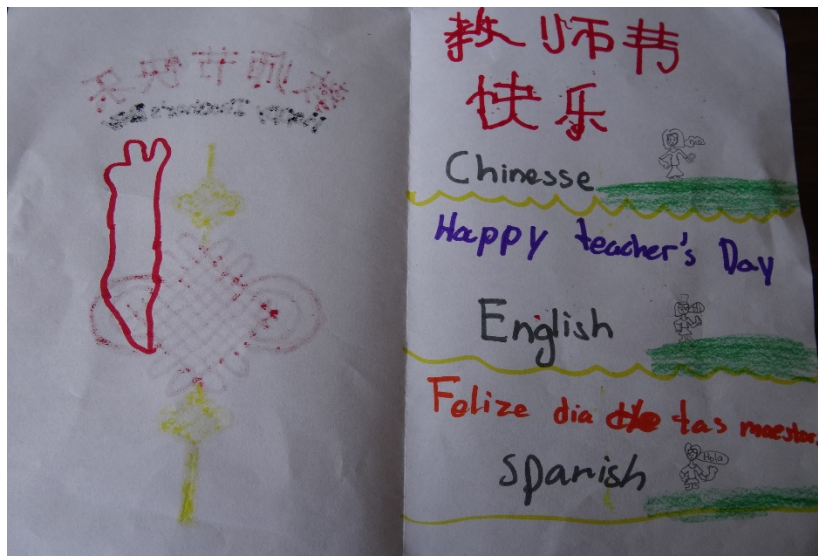 教师节
快乐
Chinesse
Happy teacher's Day
English
Felize dia tas
Hola
Spanish